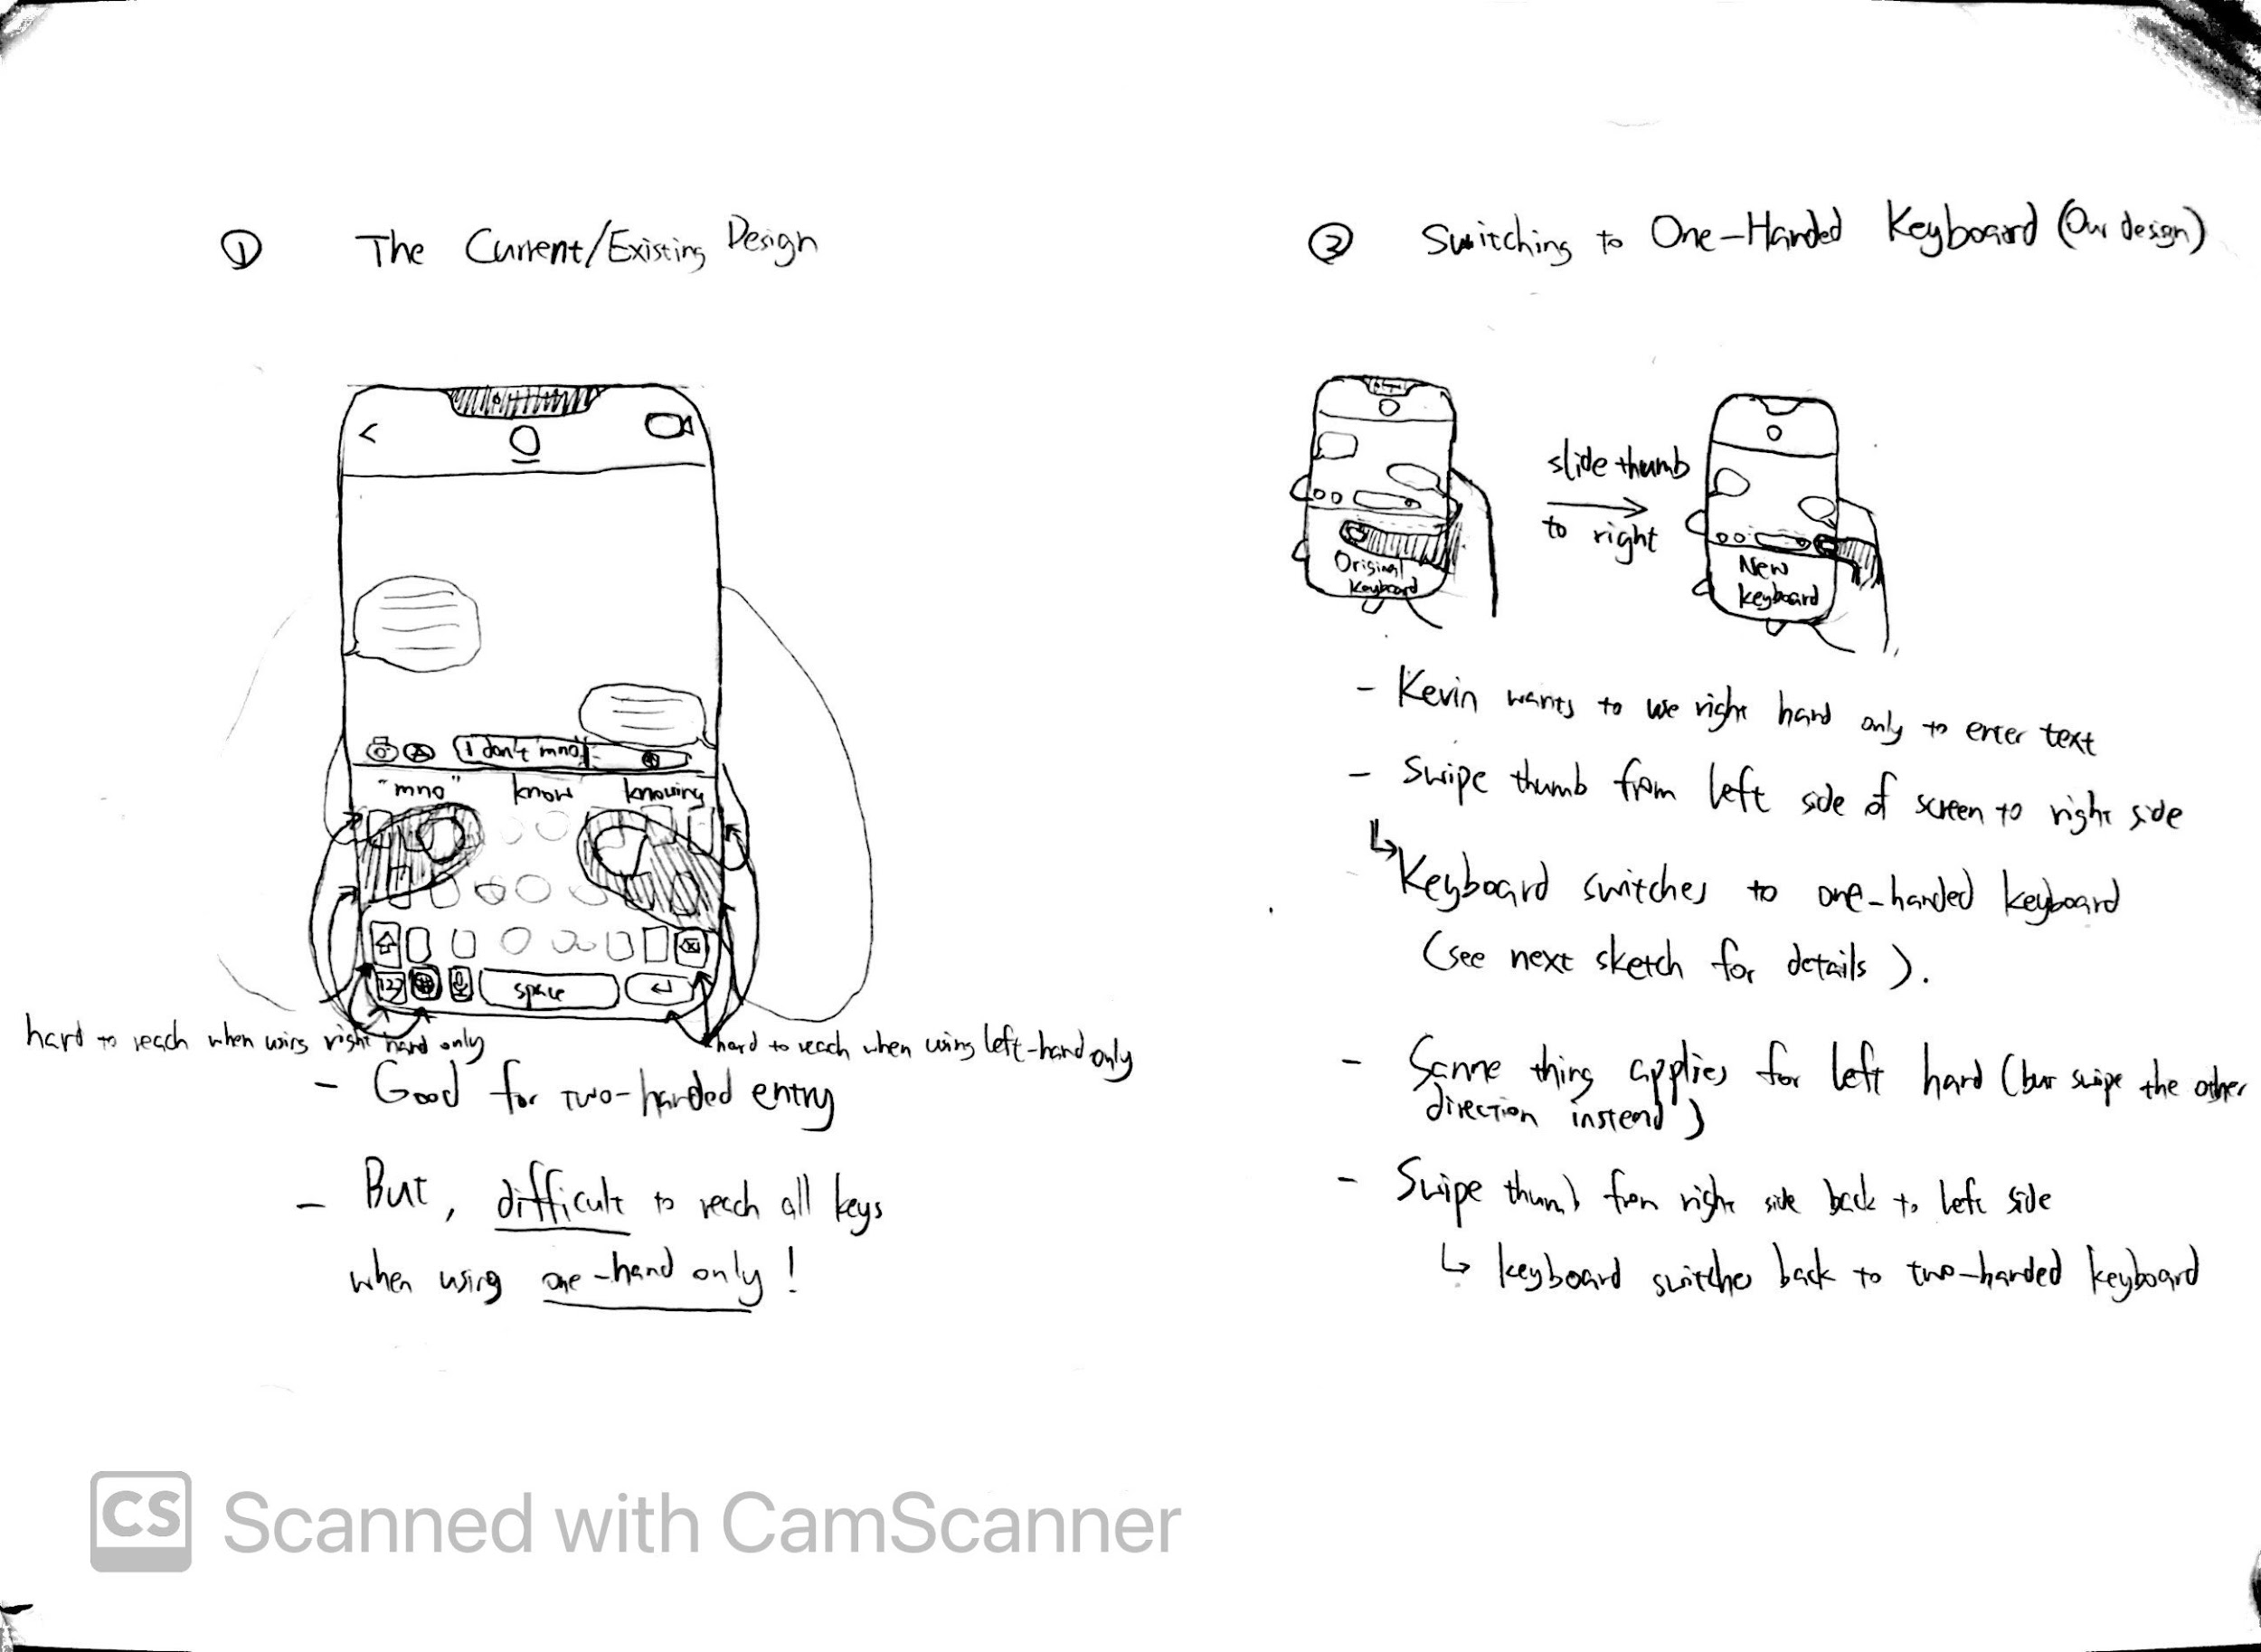 ① The Current/Existing Design
"mno" know knowing
I don't mno
123 space
hard to reach when using right hand only
hard to reach when using left-hand only
- Good for two-handed entry
- But, difficult to reach all keys
when using one-hand only!
② Switching to One-Handed Keyboard (Our design)
Original
Keyboard
slide thumb
to right
New
keyboard
- Kevin wants to use right hand only to enter text
- Swipe thumb from left side of screen to right side
↳ Keyboard switches to one-handed keyboard
(see next sketch for details).
- Same thing applies for left hand (but swipe the other
direction instead)
- Swipe thumb from right side back to left side
↳ keyboard switches back to two-handed keyboard
CS Scanned with CamScanner